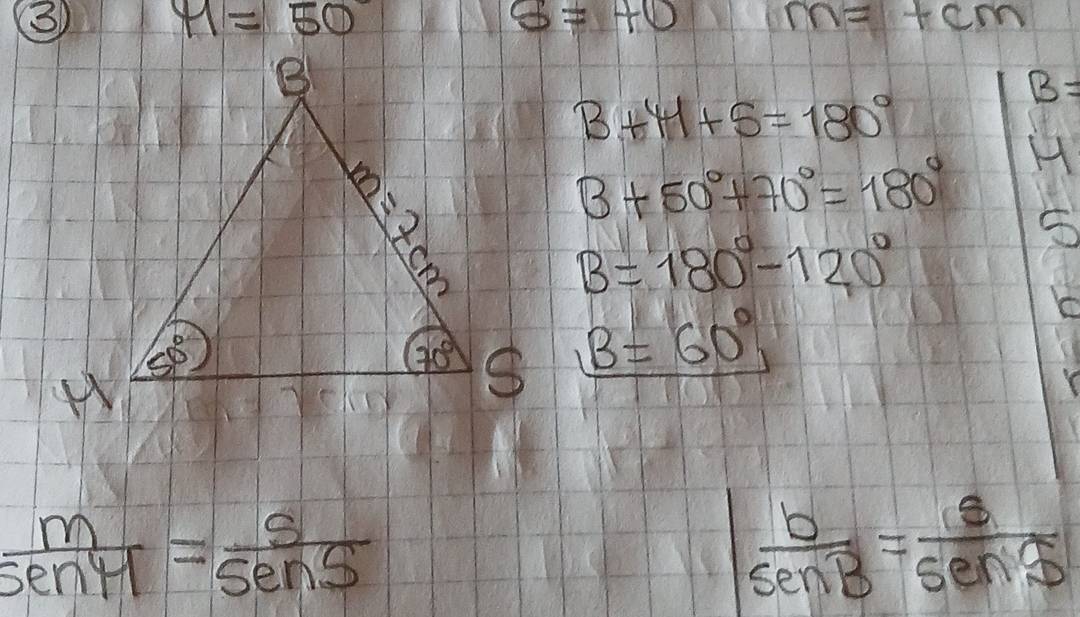 ③ M = 50° S = 70 m = 7cm
B
m = 7cm
50°
70°
M
S
B + M + S = 180°
B + 50° + 70° = 180°
B = 180° - 120°
B = 60°
B =
M
S
b
m/senM = s/senS
b/senB = s/senS